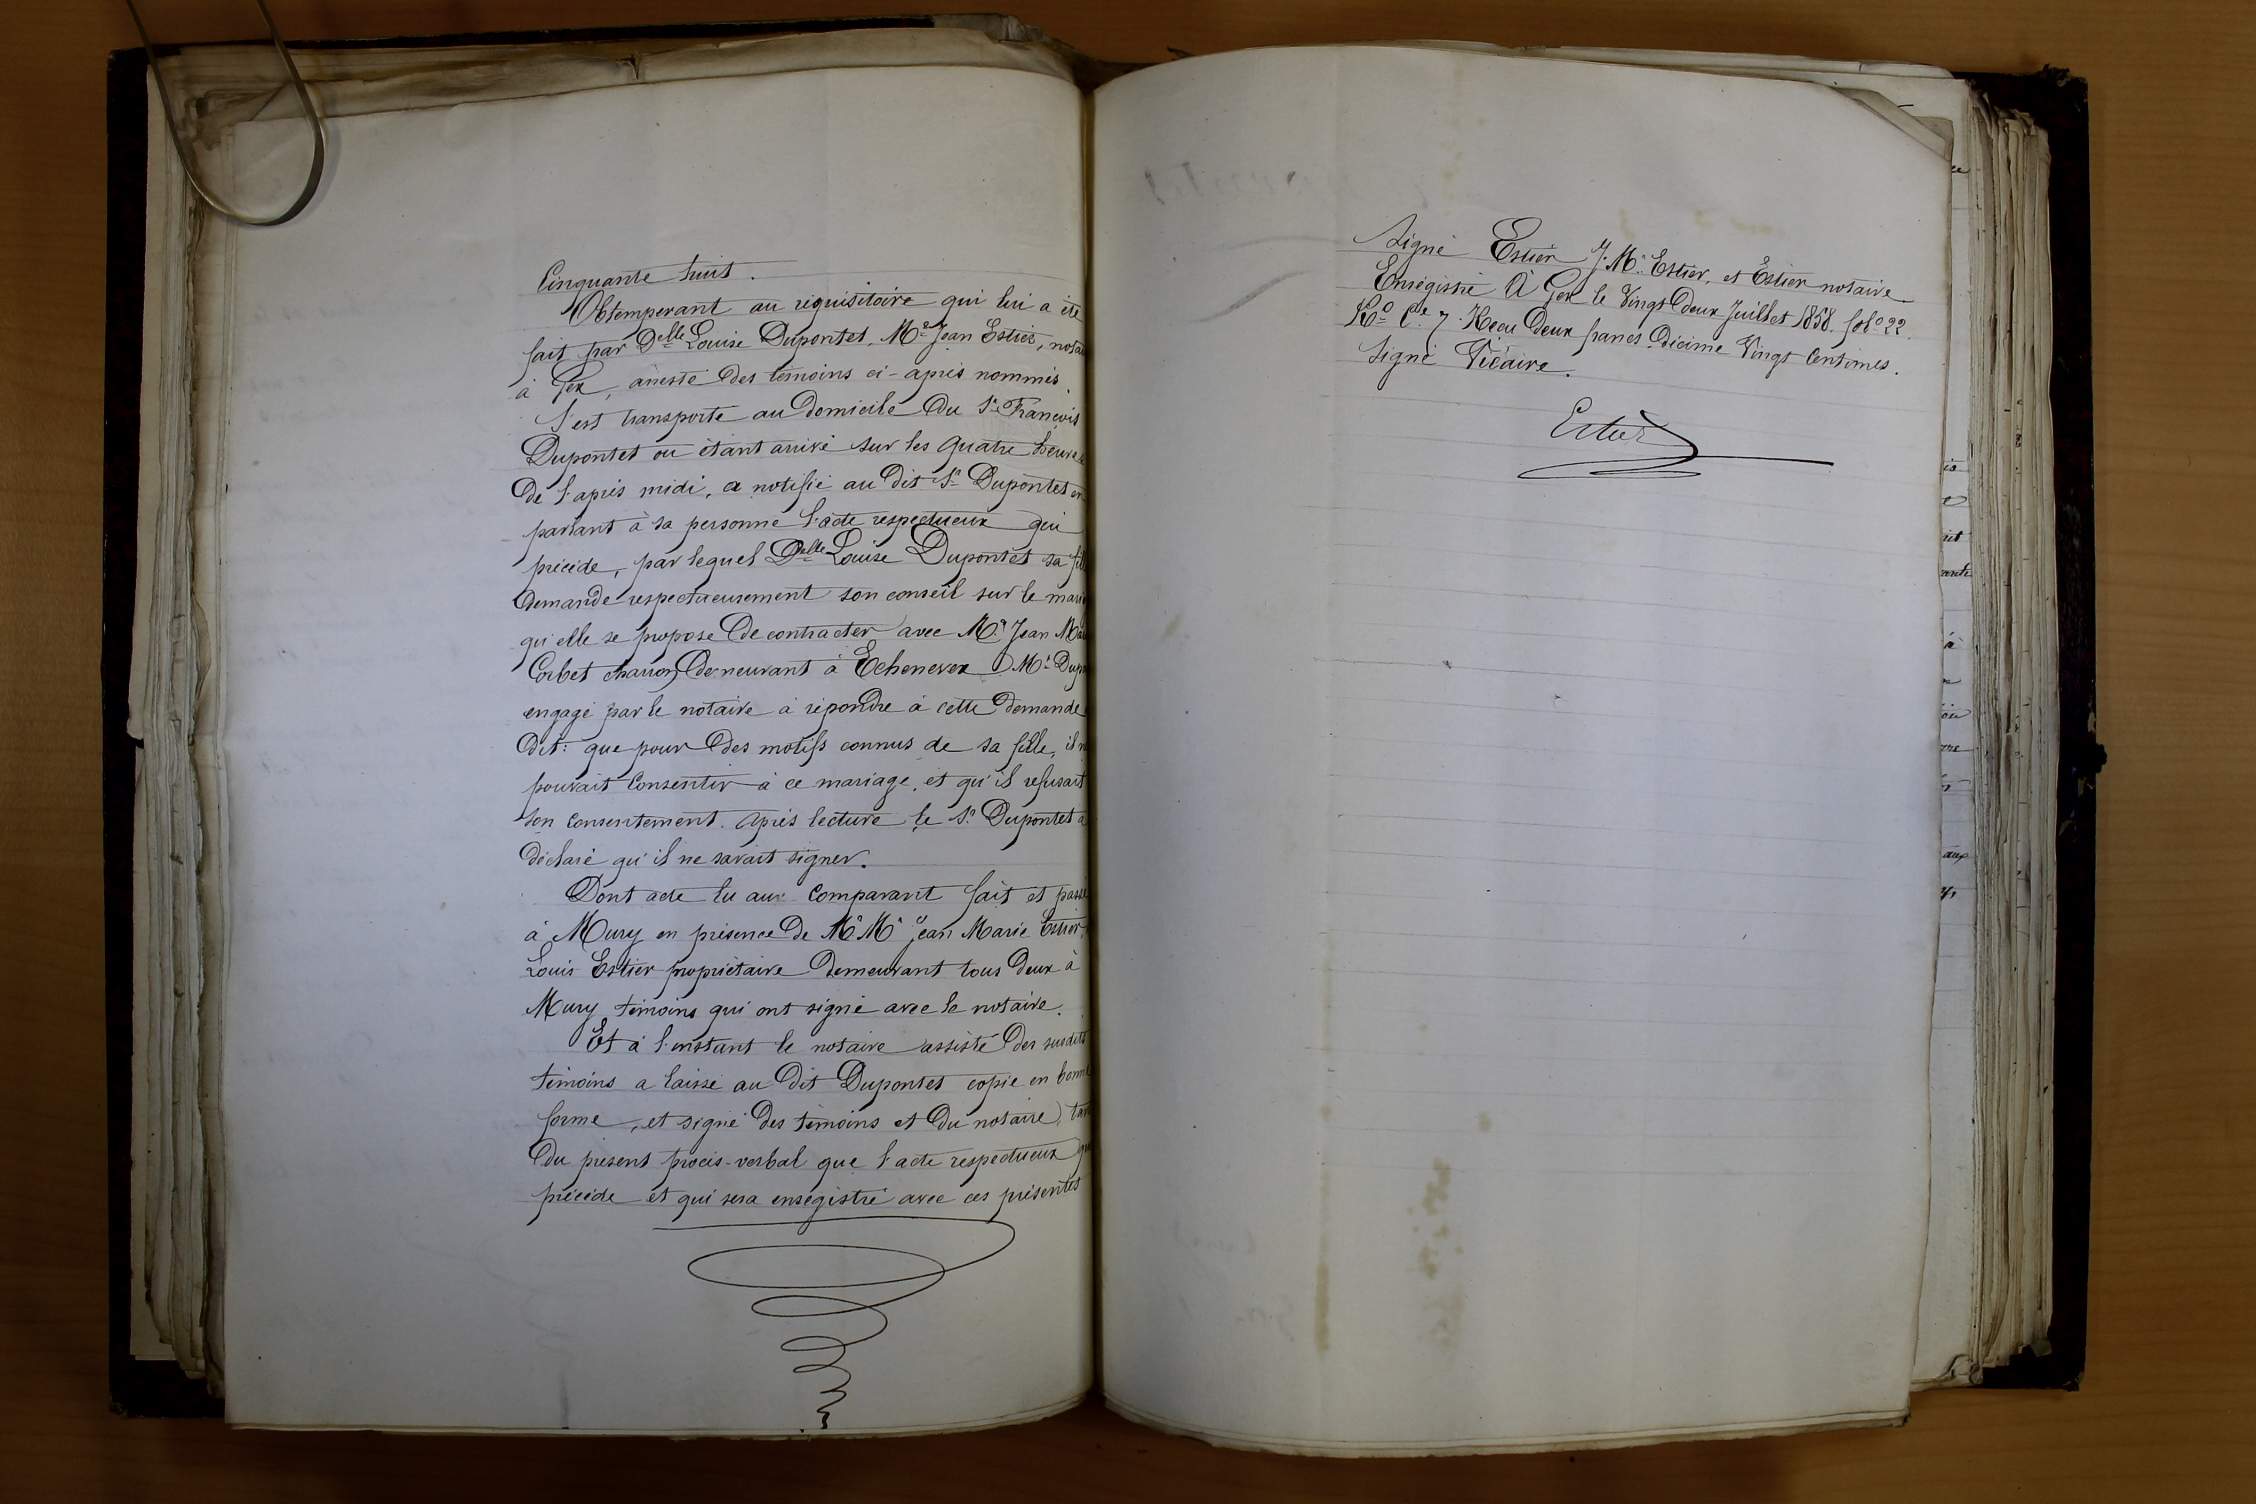 Cinquante huit.
Obtemperant au réquisitoire qui lui a été
fait par Delle Louise Dupontet, Me Jean Estier, nota
à Gex, assisté des témoins ci-après nommés.
S'est transporté au domicile du Sr François
Dupontet ou étant arrivé sur les quatre heures
de l'après midi, a notifié au dit Sr Dupontet en
parlant à sa personne l'acte respectueux qui
précède, par lequel Delle Louise Dupontet sa fil
demande respectueusement son conseil sur le mari
qu'elle se propose de contracter avec Mr Jean Ma
Corbet charron demeurant à Echenevex. Mr Dupo
engagé par le notaire à répondre à cette demande
dit: que pour des motifs connus de sa fille, il n
pouvait consentir à ce mariage, et qu'il refusait
son consentement. Après lecture le Sr Dupontet a
déclaré qu'il ne savait signer.
Dont acte lu aux comparant fait et passé
à Mury en présence de Mr Mr Jean Marie Estier,
Louis Estier propriétaire demeurant tous deux à
Mury témoins qui ont signé avec le notaire.
Et à l'instant le notaire assisté des susdits
témoins a laissé au dit Dupontet copie en bonne
forme, et signé des témoins et du notaire, tan
du présent procès-verbal que l'acte respectueux qu
précède et qui sera enregistré avec ces présentes
Signé Estier J. Me Estier, et Estier notaire
Enrégistré à Gex le vingt deux Juillet 1858. fol° 22.
Ro Ce 7. Reçu deux francs décime vingt centimes.
Signé Vicaire.
Estier